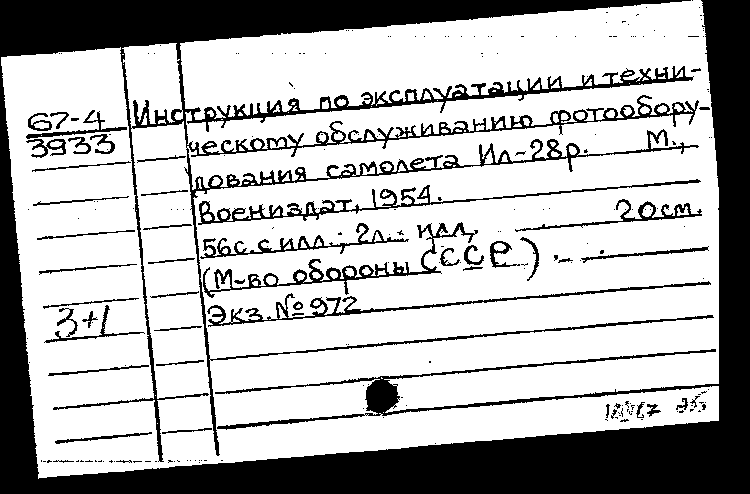 67-4
3933
Инструкция по эксплуатации и техни-
ческому обслуживанию фотообору-
дования самолета Ил-28р. М.,
Воениздат, 1954.
56с. с илл.; 2л. илл. 20см.
(М-во обороны СССР)
Экз. № 972
3+1